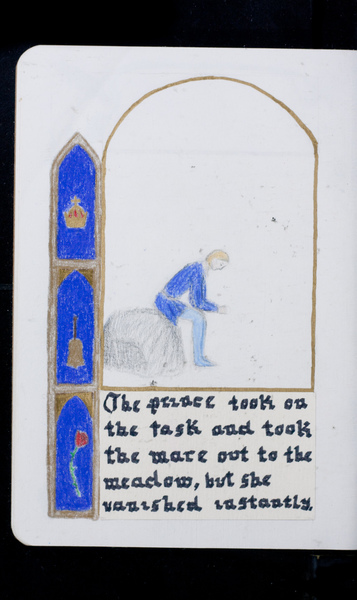 The prince took on
the task and took
the mare out to the
meadow, but she
vanished instantly.